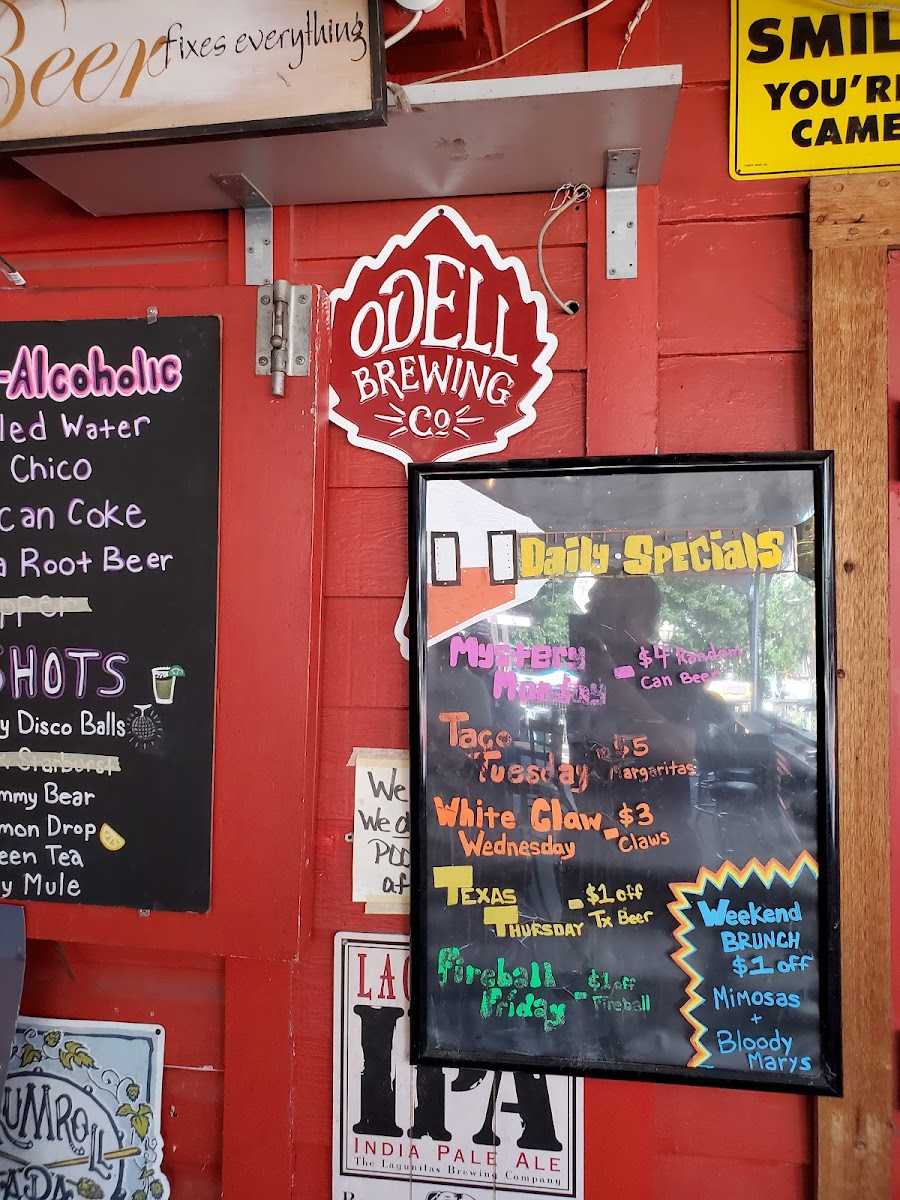 Beer fixes everything
SMIL
YOU'R
CAME
ODELL
BREWING
Co
-Alcoholic
led Water
Chico
can Coke
a Root Beer
pper
SHOTS
y Disco Balls
Starburst
mmy Bear
mon Drop
een Tea
y Mule
Daily Specials
Mystery
Monday
- $4 Random
Can Beer
Taco
Tuesday
$5
Margaritas
White Claw
Wednesday
- $3
Claws
Texas
Thursday
- $1 off
Tx Beer
Fireball
Friday
- $1 off
Fireball
Weekend
BRUNCH
$1 off
Mimosas
+
Bloody
Marys
We
We d
POO
af
LAG
IPA
INDIA PALE ALE
The Lagunitas Brewing Company
UMROLL
ADA